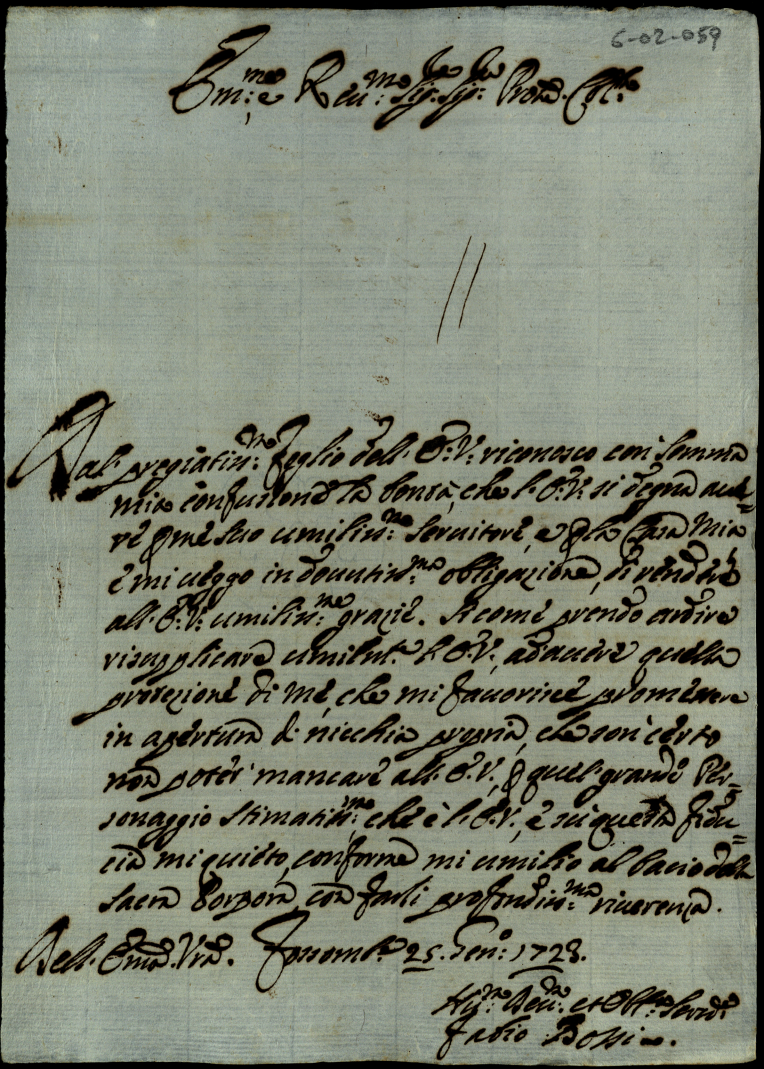 6-02-059
Em:mo e Reu:mo Sig:re Sig:re Pron. Col:mo
Dal pregiatiss:mo foglio dell'E:V: riconosco con somma
mia confusione la bontà, che l'E:V: si degna aue=
re per me suo umiliss:mo Seruitore, e per la Casa Mia
e mi ueggo in douutiss:ma obligazione, di rendere
all'E:V: umiliss:me grazie. Sicome prendo ardire
risupplicare umilm:te l'E:V:, ad auere quella
protezione di me, che mi fauorisce promettere
in apertura di nicchia propria, che son certo
non poter mancare all'E:V:, per quel grande Per=
sonaggio Stimatiss:mo, che è l'E:V:, e su questa fidu=
cia mi quieto, conforme mi umilio al bacio della
Sacra Porpora, con farli profondiss:ma riuerenza.
Dell'Em:a Vra. Fossomb:e 25. Gen:o 1728.
Hu:mo Deu:mo et Obl:mo Seru:re
Fabio